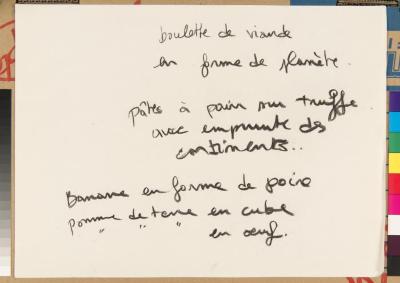 boulette de viande
en forme de planète.
pâtes à pain sur truffe.
avec emprunte des
continents..
Banane en forme de poire
Pomme de terre en cube
" " " en œuf.